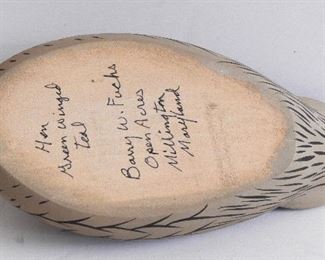 Hen
Green winged
teal
Barry W. Fuchs
Open Acres
Millington
Maryland